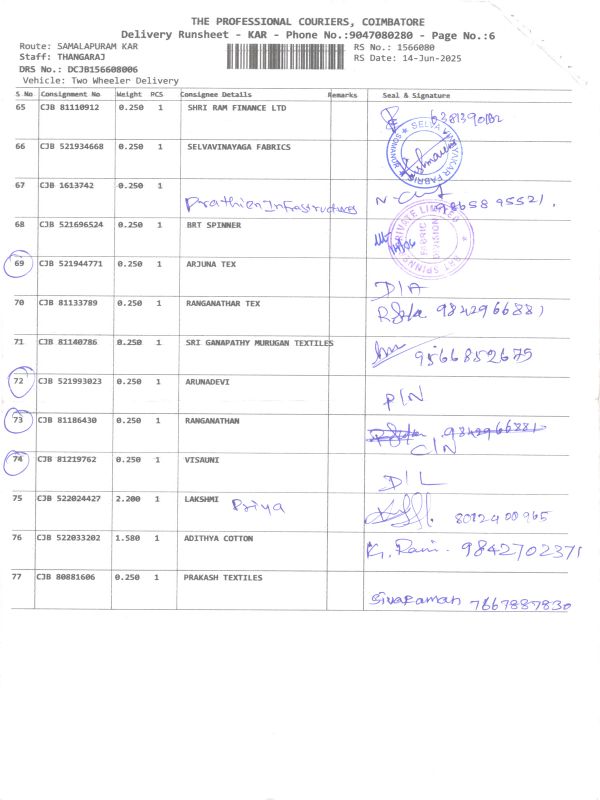 THE PROFESSIONAL COURIERS, COIMBATORE
Delivery Runsheet - KAR - Phone No.:9047080280 - Page No.:6
Route: SAMALAPURAM KAR RS No.: 1566080
Staff: THANGARAJ RS Date: 14-Jun-2025
DRS No.: DCJB156608006
Vehicle: Two Wheeler Delivery
S No Consignment No Weight PCS Consignee Details Remarks Seal & Signature
65 CJB 81110912 0.250 1 SHRI RAM FINANCE LTD
66 CJB 521934668 0.250 1 SELVAVINAYAGA FABRICS
67 CJB 1613742 0.250 1 Prathien Infrastructures 98658 95521.
68 CJB 521696524 0.250 1 BRT SPINNER
PRIVATE LIMITED FABRIC DIVISION BRT SPINN
69 CJB 521944771 0.250 1 ARJUNA TEX D/A
70 CJB 81133789 0.250 1 RANGANATHAR TEX 9842966881
71 CJB 81140786 0.250 1 SRI GANAPATHY MURUGAN TEXTILES 9566852675
72 CJB 521993023 0.250 1 ARUNADEVI P/N
73 CJB 81186430 0.250 1 RANGANATHAN 9842966881 C/N
74 CJB 81219762 0.250 1 VISAUNI D/L
75 CJB 522024427 2.200 1 LAKSHMI Priya 8012400965
76 CJB 522033202 1.580 1 ADITHYA COTTON K. Rani. 9842702371
77 CJB 80881606 0.250 1 PRAKASH TEXTILES Sivaraman 7667887830